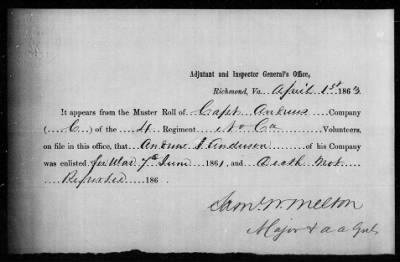 Adjutant and Inspector General's Office,
Richmond, Va. April 1st 1863.
It appears from the Muster Roll of Capt Andrews Company
(C) of the 4 Regiment No Ca Volunteers,
on file in this office, that Andrew J Anderson of his Company
was enlisted for War 7th June 1861, and Death Not
Reported 186
Saml W Melton
Major & a a Genl